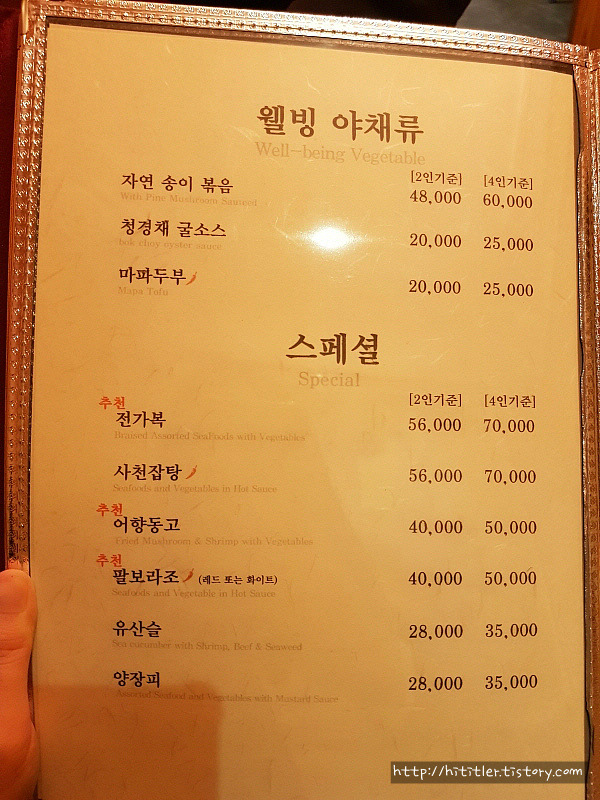 웰빙 야채류
Well-being Vegetable
[2인기준] [4인기준]
자연 송이 볶음 48,000 60,000
With Pine Mushroom Sauteed
청경채 굴소스 20,000 25,000
bok choy oyster sauce
마파두부 20,000 25,000
Mapa Tofu
스페셜
Special
[2인기준] [4인기준]
추천
전가복 56,000 70,000
Braised Assorted SeaFoods with Vegetables
사천잡탕 56,000 70,000
Seafoods and Vegetables in Hot Sauce
추천
어향동고 40,000 50,000
Fried Mushroom & Shrimp with Vegetables
추천
팔보라조 (레드 또는 화이트) 40,000 50,000
Seafoods and Vegetable in Hot Sauce
유산슬 28,000 35,000
Sea cucumber with Shrimp, Beef & Seaweed
양장피 28,000 35,000
Assorted Seafood and Vegetables with Mustard Sauce
http://hititler.tistory.com